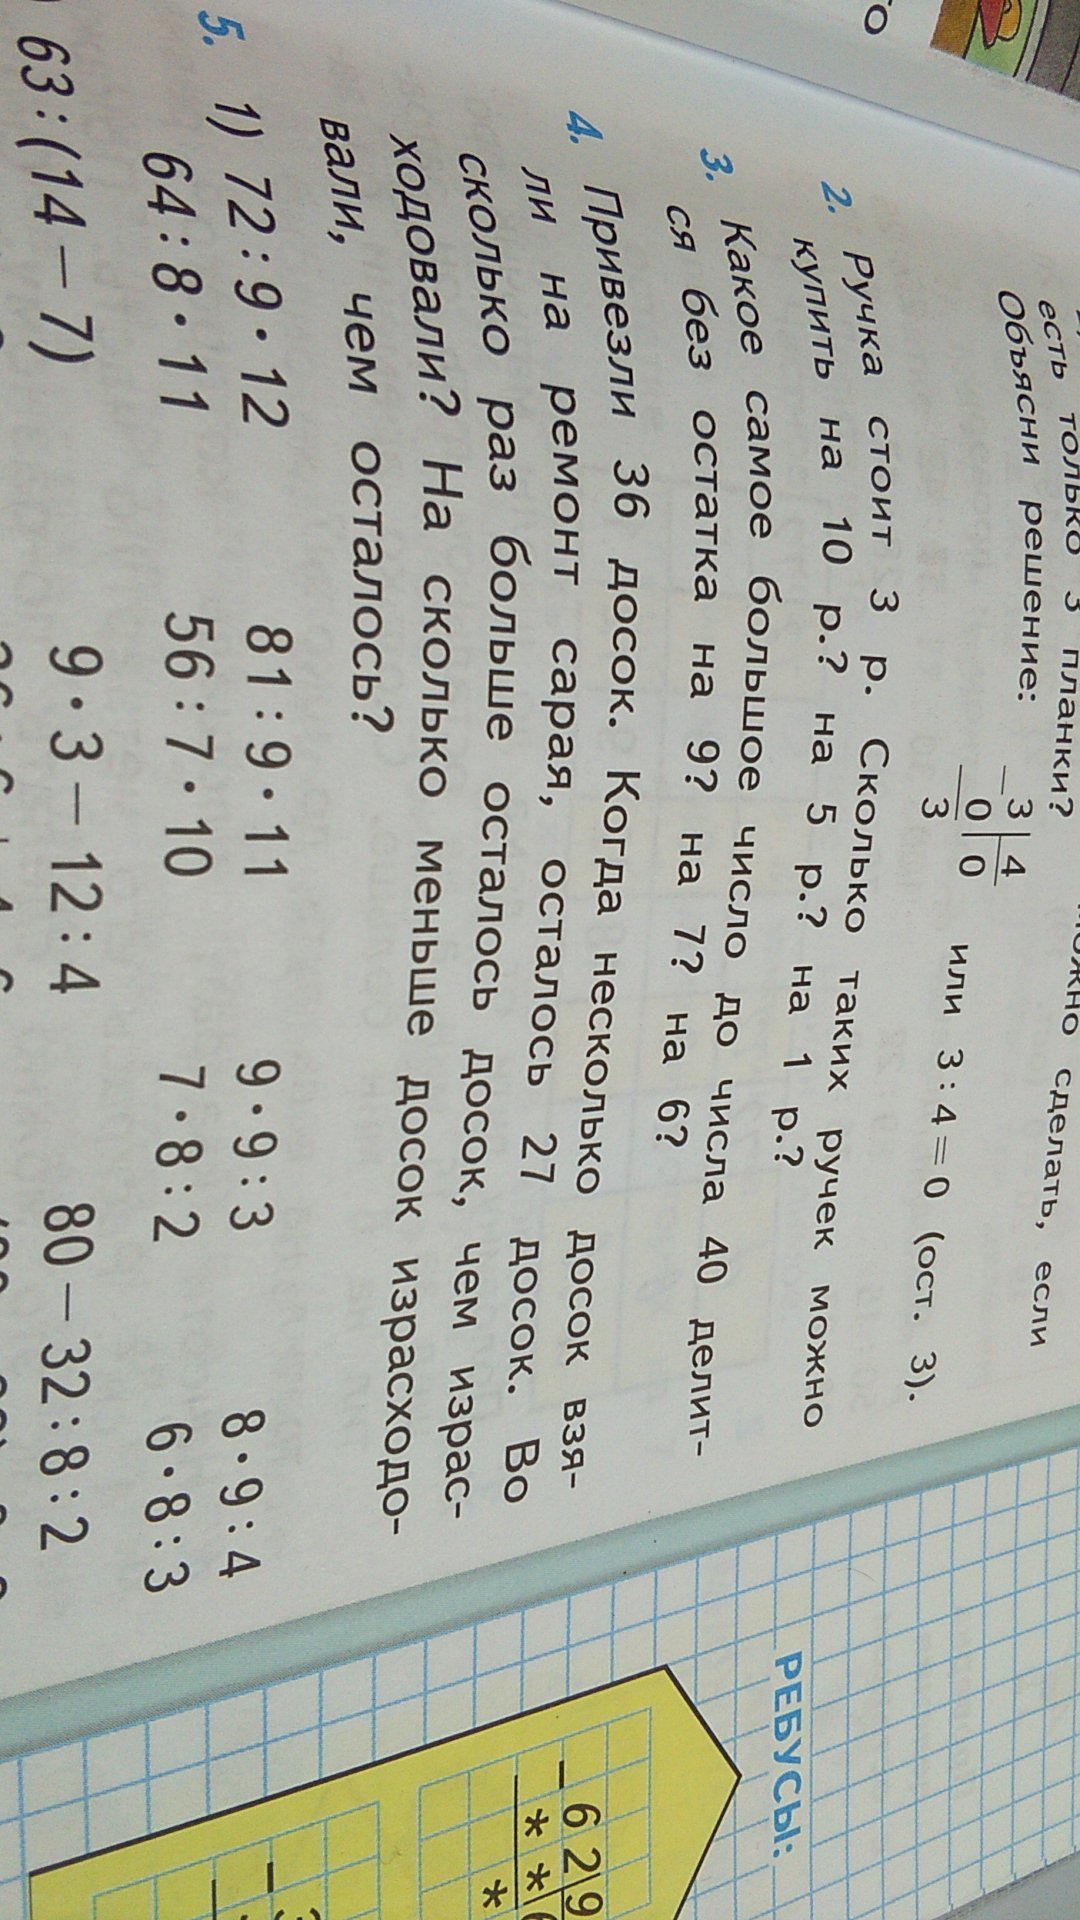 есть только 3 планки?
сделать, если
Объясни решение:
3 4
0 0
3
или 3 : 4 = 0 (ост. 3).
2. Ручка стоит 3 р. Сколько таких ручек можно
купить на 10 р.? на 5 р.? на 1 р.?
3. Какое самое большое число до числа 40 делит-
ся без остатка на 9? на 7? на 6?
4. Привезли 36 досок. Когда несколько досок взя-
ли на ремонт сарая, осталось 27 досок. Во
сколько раз больше осталось досок, чем израс-
ходовали? На сколько меньше досок израсходо-
вали, чем осталось?
5. 1) 72 : 9 · 12 81 : 9 · 11 9 · 9 : 3 8 · 9 : 4
64 : 8 · 11 56 : 7 · 10 7 · 8 : 2 6 · 8 : 3
63 : (14 − 7) 9 · 3 − 12 : 4 80 − 32 : 8 : 2
РЕБУСЫ:
− 6 2 9
* *
*